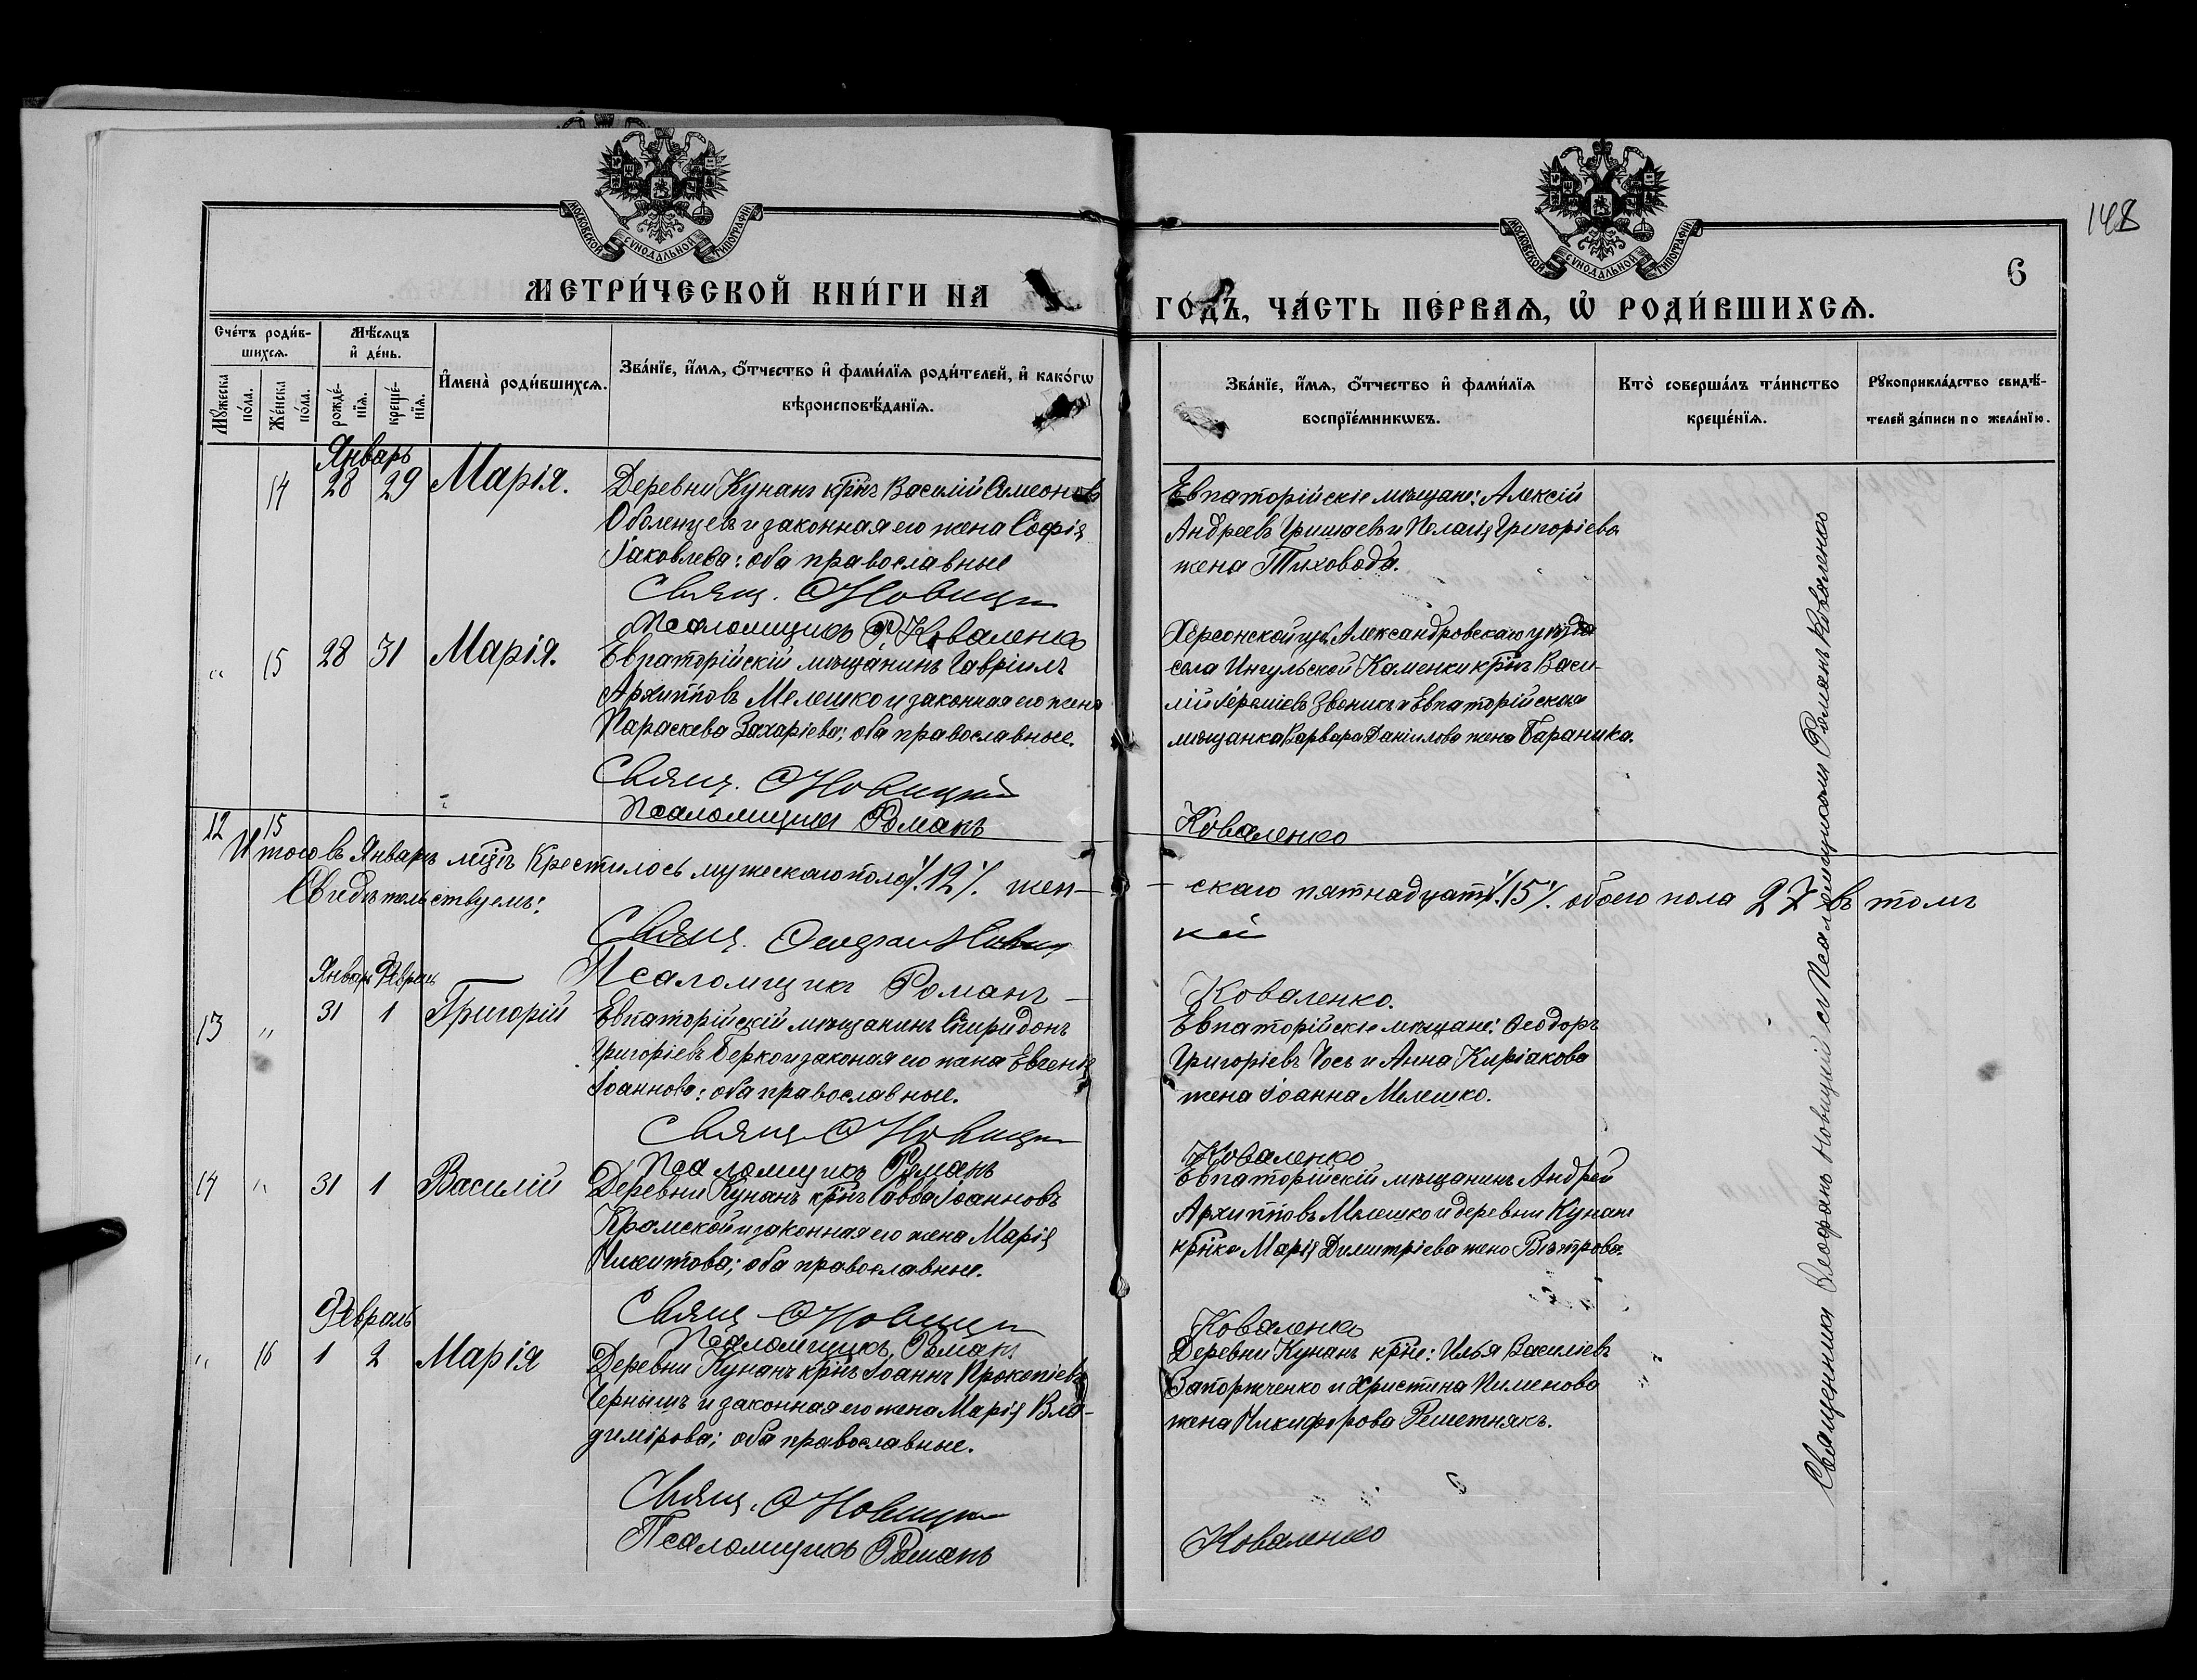 148
6
МОСКОВСКОЙ СѴНОДАЛЬНОЙ ТИПОГРАФІИ
МОСКОВСКОЙ СѴНОДАЛЬНОЙ ТИПОГРАФІИ
МЕТРИ́ЧЕСКОЙ КНИ́ГИ НА
ГО́ДЪ, ЧА́СТЬ ПЕ́РВАѦ, Ѡ҆ РОДИ́ВШИХСѦ.
Сче́тъ роди́в-
шихсѧ.
Мꙋ́жеска
по́ла.
Же́нска
по́ла.
Мѣ́сѧцъ
и҆ де́нь.
рожде́-
нїѧ.
креще́-
нїѧ.
И҆мена̀ роди́вшихсѧ.
Зва́нїе, и҆́мѧ, ѻ҆́тчество и҆ фами́лїѧ роди́телей, и҆ како́гѡ
вѣроисповѣ́данїѧ.
Зва́нїе, и҆́мѧ, ѻ҆́тчество и҆ фами́лїѧ
воспрїе́мникѡвъ.
Кто̀ соверша́лъ та́инство
креще́нїѧ.
Рꙋкоприкла́дство свидѣ́-
телей за́писи по жела́нїю.
Январь
14 28 29 Марія.
Деревни Кунанъ кр҃нъ Василій Симеоновъ
Оболенцевъ и законная его жена Софія
Іаковлева: оба православные
Свящ. Ѳ Новицкій
Псаломщикъ Р. Коваленко
Евпаторійскіе мѣщане: Алексій
Андреевъ Гришаевъ и Пелагія Григоріева
жена Тиховода.
" 15 28 31 Марія.
Евпаторійскій мѣщанинъ Гавріилъ
Архипповъ Мелешко и законная его жена
Параскева Захаріева; оба православные.
Свящ. Ѳ Новицкій
Псаломщикъ Романъ
Херсонской губ. Александровскаго уѣзда
села Ингульской Каменки кр҃нъ Васи-
лій Іереміевъ Звоникъ и Евпаторійская
мѣщанка Варвара Даніилова жена Бараника.
Коваленко
12 15
Итого въ Январѣ мц҃ѣ крестилось мужескаго пола ./. 12 ./. жен-
- скаго пятнадцать ./. 15 ./. обоего пола 27 въ томъ
Свидѣтельствуемъ:
Свящ. Ѳеофан Новиц
кій
Псаломщикъ Романъ -
Коваленко.
Январь Февраль
13 " 31 1 Григорій
Евпаторійскій мѣщанинъ Спиридонъ
Григоріевъ Берко и законая его жена Евгенія
Іоаннова: оба православные.
Свящ. Ѳ Новицкій
Псаломщикъ Романъ
Евпаторійскіе мѣщане: Ѳеодоръ
Григоріевъ Чось и Анна Киріакова
жена Іоанна Мелешко.
Коваленко
14 " 31 1 Василій
Деревни Кунанъ кр҃нъ Савва Іоанновъ
Крамской и законная его жена Марія
Никитова; оба православные.
Свящ. Ѳ Новицкій
Псаломщикъ, Романъ
Евпаторійскій мѣщанинъ Андрей
Архипповъ Мелешко и деревни Кунанъ
кр҃нка Марія Димитріева жена Вѣтрова.
Коваленко
Февраль
" 16 1 2 Марія
Деревни Кунанъ кр҃нъ Іоаннъ Прокопіевъ
Чернышъ и законная его жена Марія Вла-
димірова; оба православные.
Свящ. Ѳ Новицкій
Псаломщикъ Романъ
Деревни Кунанъ кр҃не: Илья Василіевъ
Запорженко и Христина Пименова
жена Никифорова Решетнякъ.
Коваленко
Священникъ Ѳеофанъ Новицкій съ Псаломщикомъ Романъ Коваленко